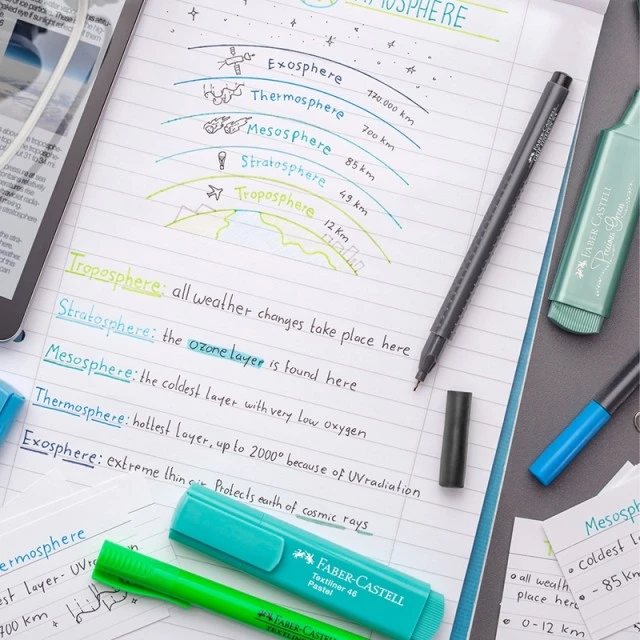 ATMOSPHERE
Exosphere
170.000 km
Thermosphere
700 km
Mesosphere
85 km
Stratosphere
49 km
Troposphere
12 km
Troposphere: all weather changes take place here
Stratosphere: the ozone layer is found here
Mesosphere: the coldest layer with very low oxygen
Thermosphere: hottest layer, up to 2000° because of UV radiation
Exosphere: extreme thin air. Protects earth of cosmic rays
FABER-CASTELL
FABER-CASTELL
Textliner 46
Pastel
FABER-CASTELL
TEXTLINER
hermosphere
est layer - UV
700 km +
Mesosph
• coldest L
• - 85 k
• all weath
place her
• 0-12 km